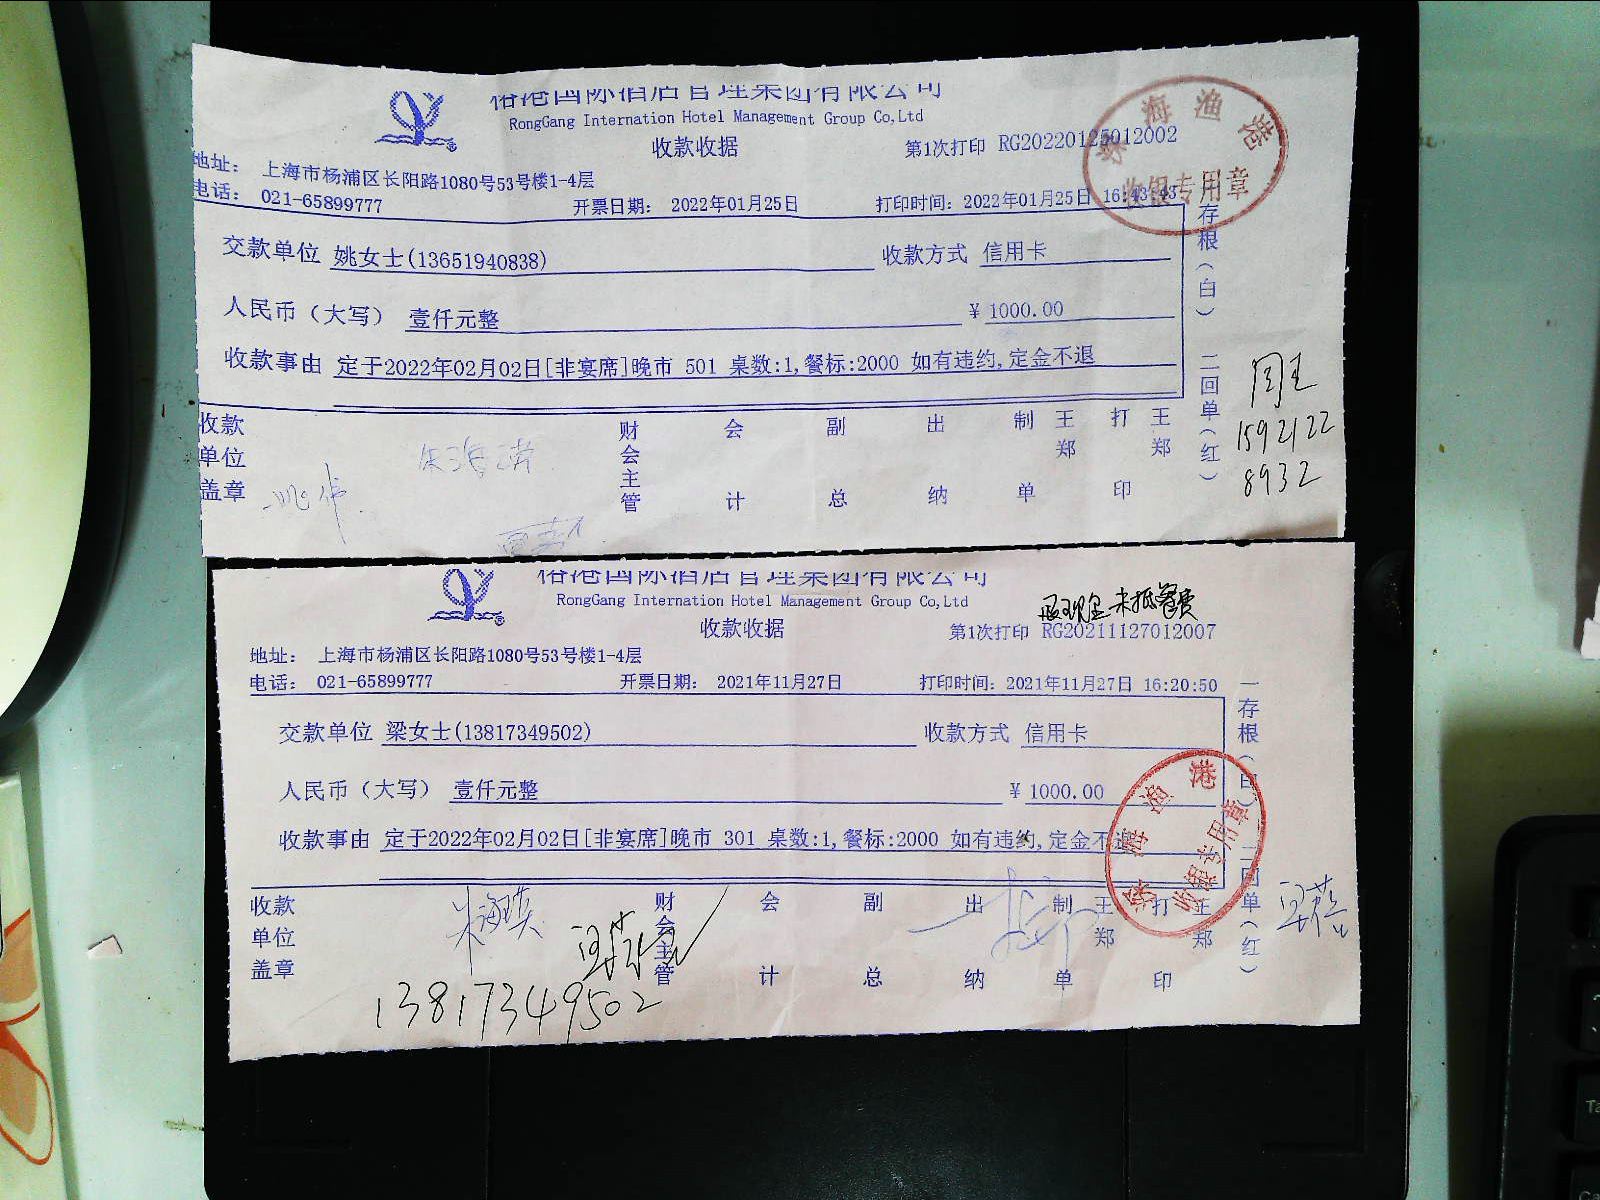 裕港国际酒店管理集团有限公司
RongGang Internation Hotel Management Group Co,Ltd
收款收据
第1次打印 RG20220125012002
地址： 上海市杨浦区长阳路1080号53号楼1-4层
电话： 021-65899777
开票日期： 2022年01月25日
打印时间：2022年01月25日 16:43:43
深海渔港
收银专用章
交款单位 姚女士(13651940838)
收款方式 信用卡
人民币（大写） 壹仟元整
￥1000.00
收款事由 定于2022年02月02日[非宴席]晚市 501 桌数:1,餐标:2000 如有违约,定金不退
一存根(白) 二回单(红)
1592122
8932
收款单位盖章
财会主管 会计 副总 出纳 制单 王郑 打印 王郑
裕港国际酒店管理集团有限公司
RongGang Internation Hotel Management Group Co,Ltd
收款收据
退现金.未抵餐费
第1次打印 RG20211127012007
地址： 上海市杨浦区长阳路1080号53号楼1-4层
电话： 021-65899777
开票日期： 2021年11月27日
打印时间：2021年11月27日 16:20:50
交款单位 梁女士(13817349502)
收款方式 信用卡
人民币（大写） 壹仟元整
￥1000.00
收款事由 定于2022年02月02日[非宴席]晚市 301 桌数:1,餐标:2000 如有违约,定金不退
深海渔港
收银专用章
一存根(白) 二回单(红)
收款单位盖章
财会主管 会计 副总 出纳 制单 王郑 打印 王郑
13817349502